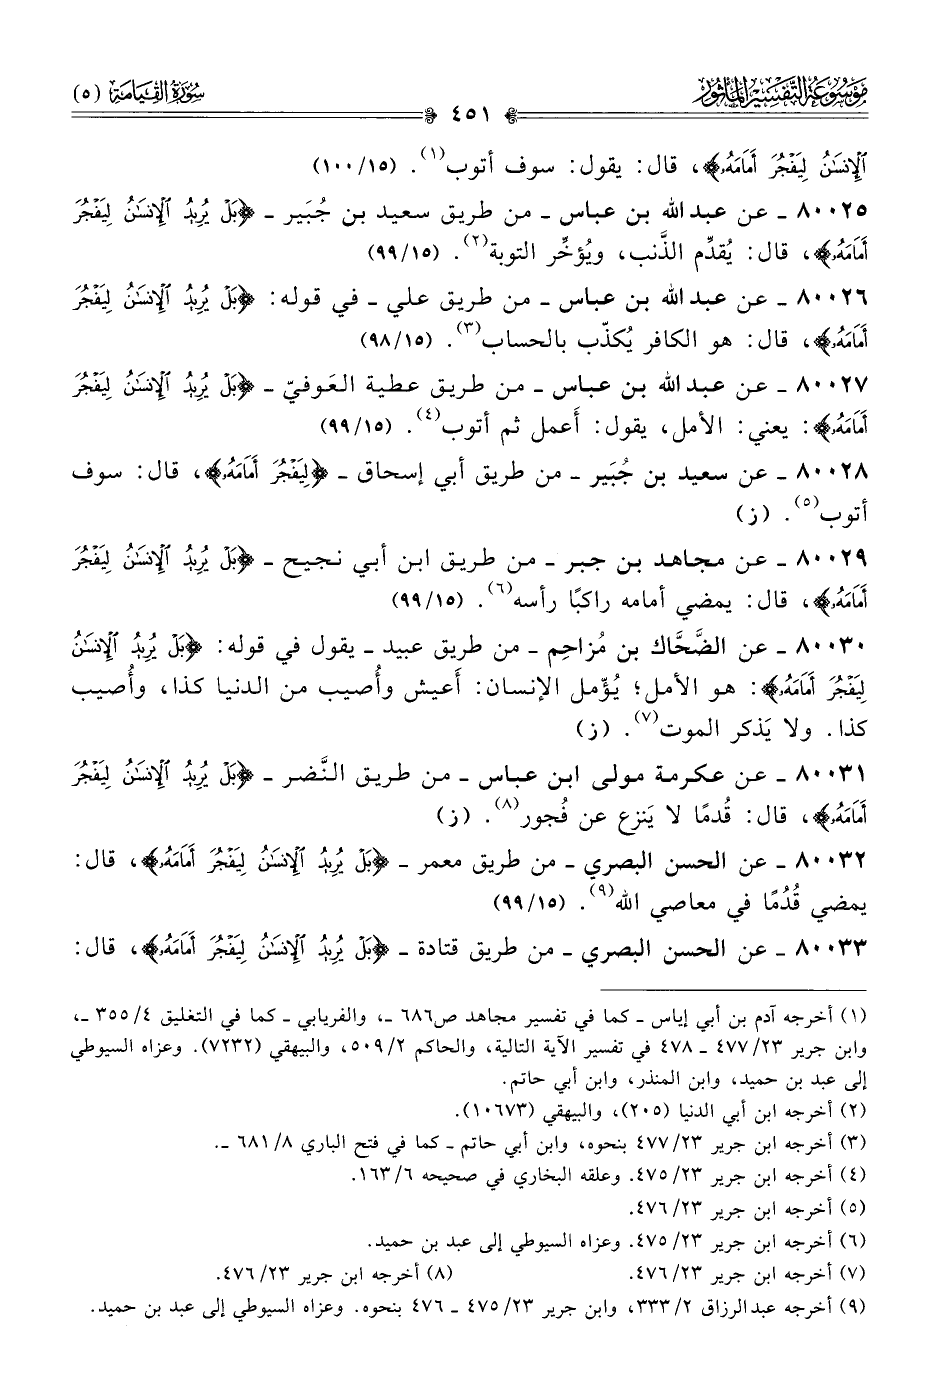 مَوْسُوعَةُ التَّفْسِيرِ المَأْثُورِ
سُورَةُ القِيَامَةِ (٥)
٤٥١
ٱلۡإِنسَٰنُ لِيَفۡجُرَ أَمَامَهُۥ﴾، قال: يقول: سوف أتوب(١). (١٥/ ١٠٠)
٨٠٠٢٥ ـ عن عبد الله بن عباس ـ من طريق سعيد بن جُبَير ـ ﴿بَلۡ يُرِيدُ ٱلۡإِنسَٰنُ لِيَفۡجُرَ
أَمَامَهُۥ﴾، قال: يُقدِّم الذَّنب، ويُؤخِّر التوبة(٢). (١٥/ ٩٩)
٨٠٠٢٦ ـ عن عبد الله بن عباس ـ من طريق علي ـ في قوله: ﴿بَلۡ يُرِيدُ ٱلۡإِنسَٰنُ لِيَفۡجُرَ
أَمَامَهُۥ﴾، قال: هو الكافر يُكذّب بالحساب(٣). (١٥/ ٩٨)
٨٠٠٢٧ ـ عن عبد الله بن عباس ـ من طريق عطية العَوفيّ ـ ﴿بَلۡ يُرِيدُ ٱلۡإِنسَٰنُ لِيَفۡجُرَ
أَمَامَهُۥ﴾: يعني: الأمل، يقول: أَعمل ثم أتوب(٤). (١٥/ ٩٩)
٨٠٠٢٨ ـ عن سعيد بن جُبَير ـ من طريق أبي إسحاق ـ ﴿لِيَفۡجُرَ أَمَامَهُۥ﴾، قال: سوف
أتوب(٥). (ز)
٨٠٠٢٩ ـ عن مجاهد بن جبر ـ من طريق ابن أبي نجيح ـ ﴿بَلۡ يُرِيدُ ٱلۡإِنسَٰنُ لِيَفۡجُرَ
أَمَامَهُۥ﴾، قال: يمضي أمامه راكبًا رأسه(٦). (١٥/ ٩٩)
٨٠٠٣٠ ـ عن الضَّحَّاك بن مُزاحِم ـ من طريق عبيد ـ يقول في قوله: ﴿بَلۡ يُرِيدُ ٱلۡإِنسَٰنُ
لِيَفۡجُرَ أَمَامَهُۥ﴾: هو الأمل؛ يُؤمل الإنسان: أَعيش وأُصيب من الدنيا كذا، وأُصيب
كذا. ولا يَذكر الموت(٧). (ز)
٨٠٠٣١ ـ عن عكرمة مولى ابن عباس ـ من طريق النَّضر ـ ﴿بَلۡ يُرِيدُ ٱلۡإِنسَٰنُ لِيَفۡجُرَ
أَمَامَهُۥ﴾، قال: قُدمًا لا يَنزع عن فُجور(٨). (ز)
٨٠٠٣٢ ـ عن الحسن البصري ـ من طريق معمر ـ ﴿بَلۡ يُرِيدُ ٱلۡإِنسَٰنُ لِيَفۡجُرَ أَمَامَهُۥ﴾، قال:
يمضي قُدُمًا في معاصي الله(٩). (١٥/ ٩٩)
٨٠٠٣٣ ـ عن الحسن البصري ـ من طريق قتادة ـ ﴿بَلۡ يُرِيدُ ٱلۡإِنسَٰنُ لِيَفۡجُرَ أَمَامَهُۥ﴾، قال:
(١) أخرجه آدم بن أبي إياس ـ كما في تفسير مجاهد ص٦٨٦ ـ، والفريابي ـ كما في التغليق ٤/ ٣٥٥ ـ،
وابن جرير ٢٣/ ٤٧٧ ـ ٤٧٨ في تفسير الآية التالية، والحاكم ٢/ ٥٠٩، والبيهقي (٧٢٣٢). وعزاه السيوطي
إلى عبد بن حميد، وابن المنذر، وابن أبي حاتم.
(٢) أخرجه ابن أبي الدنيا (٢٠٥)، والبيهقي (١٠٦٧٣).
(٣) أخرجه ابن جرير ٢٣/ ٤٧٧ بنحوه، وابن أبي حاتم ـ كما في فتح الباري ٨/ ٦٨١ ـ.
(٤) أخرجه ابن جرير ٢٣/ ٤٧٥. وعلقه البخاري في صحيحه ٦/ ١٦٣.
(٥) أخرجه ابن جرير ٢٣/ ٤٧٦.
(٦) أخرجه ابن جرير ٢٣/ ٤٧٥. وعزاه السيوطي إلى عبد بن حميد.
(٧) أخرجه ابن جرير ٢٣/ ٤٧٦. (٨) أخرجه ابن جرير ٢٣/ ٤٧٦.
(٩) أخرجه عبد الرزاق ٢/ ٣٣٣، وابن جرير ٢٣/ ٤٧٥ ـ ٤٧٦ بنحوه. وعزاه السيوطي إلى عبد بن حميد.